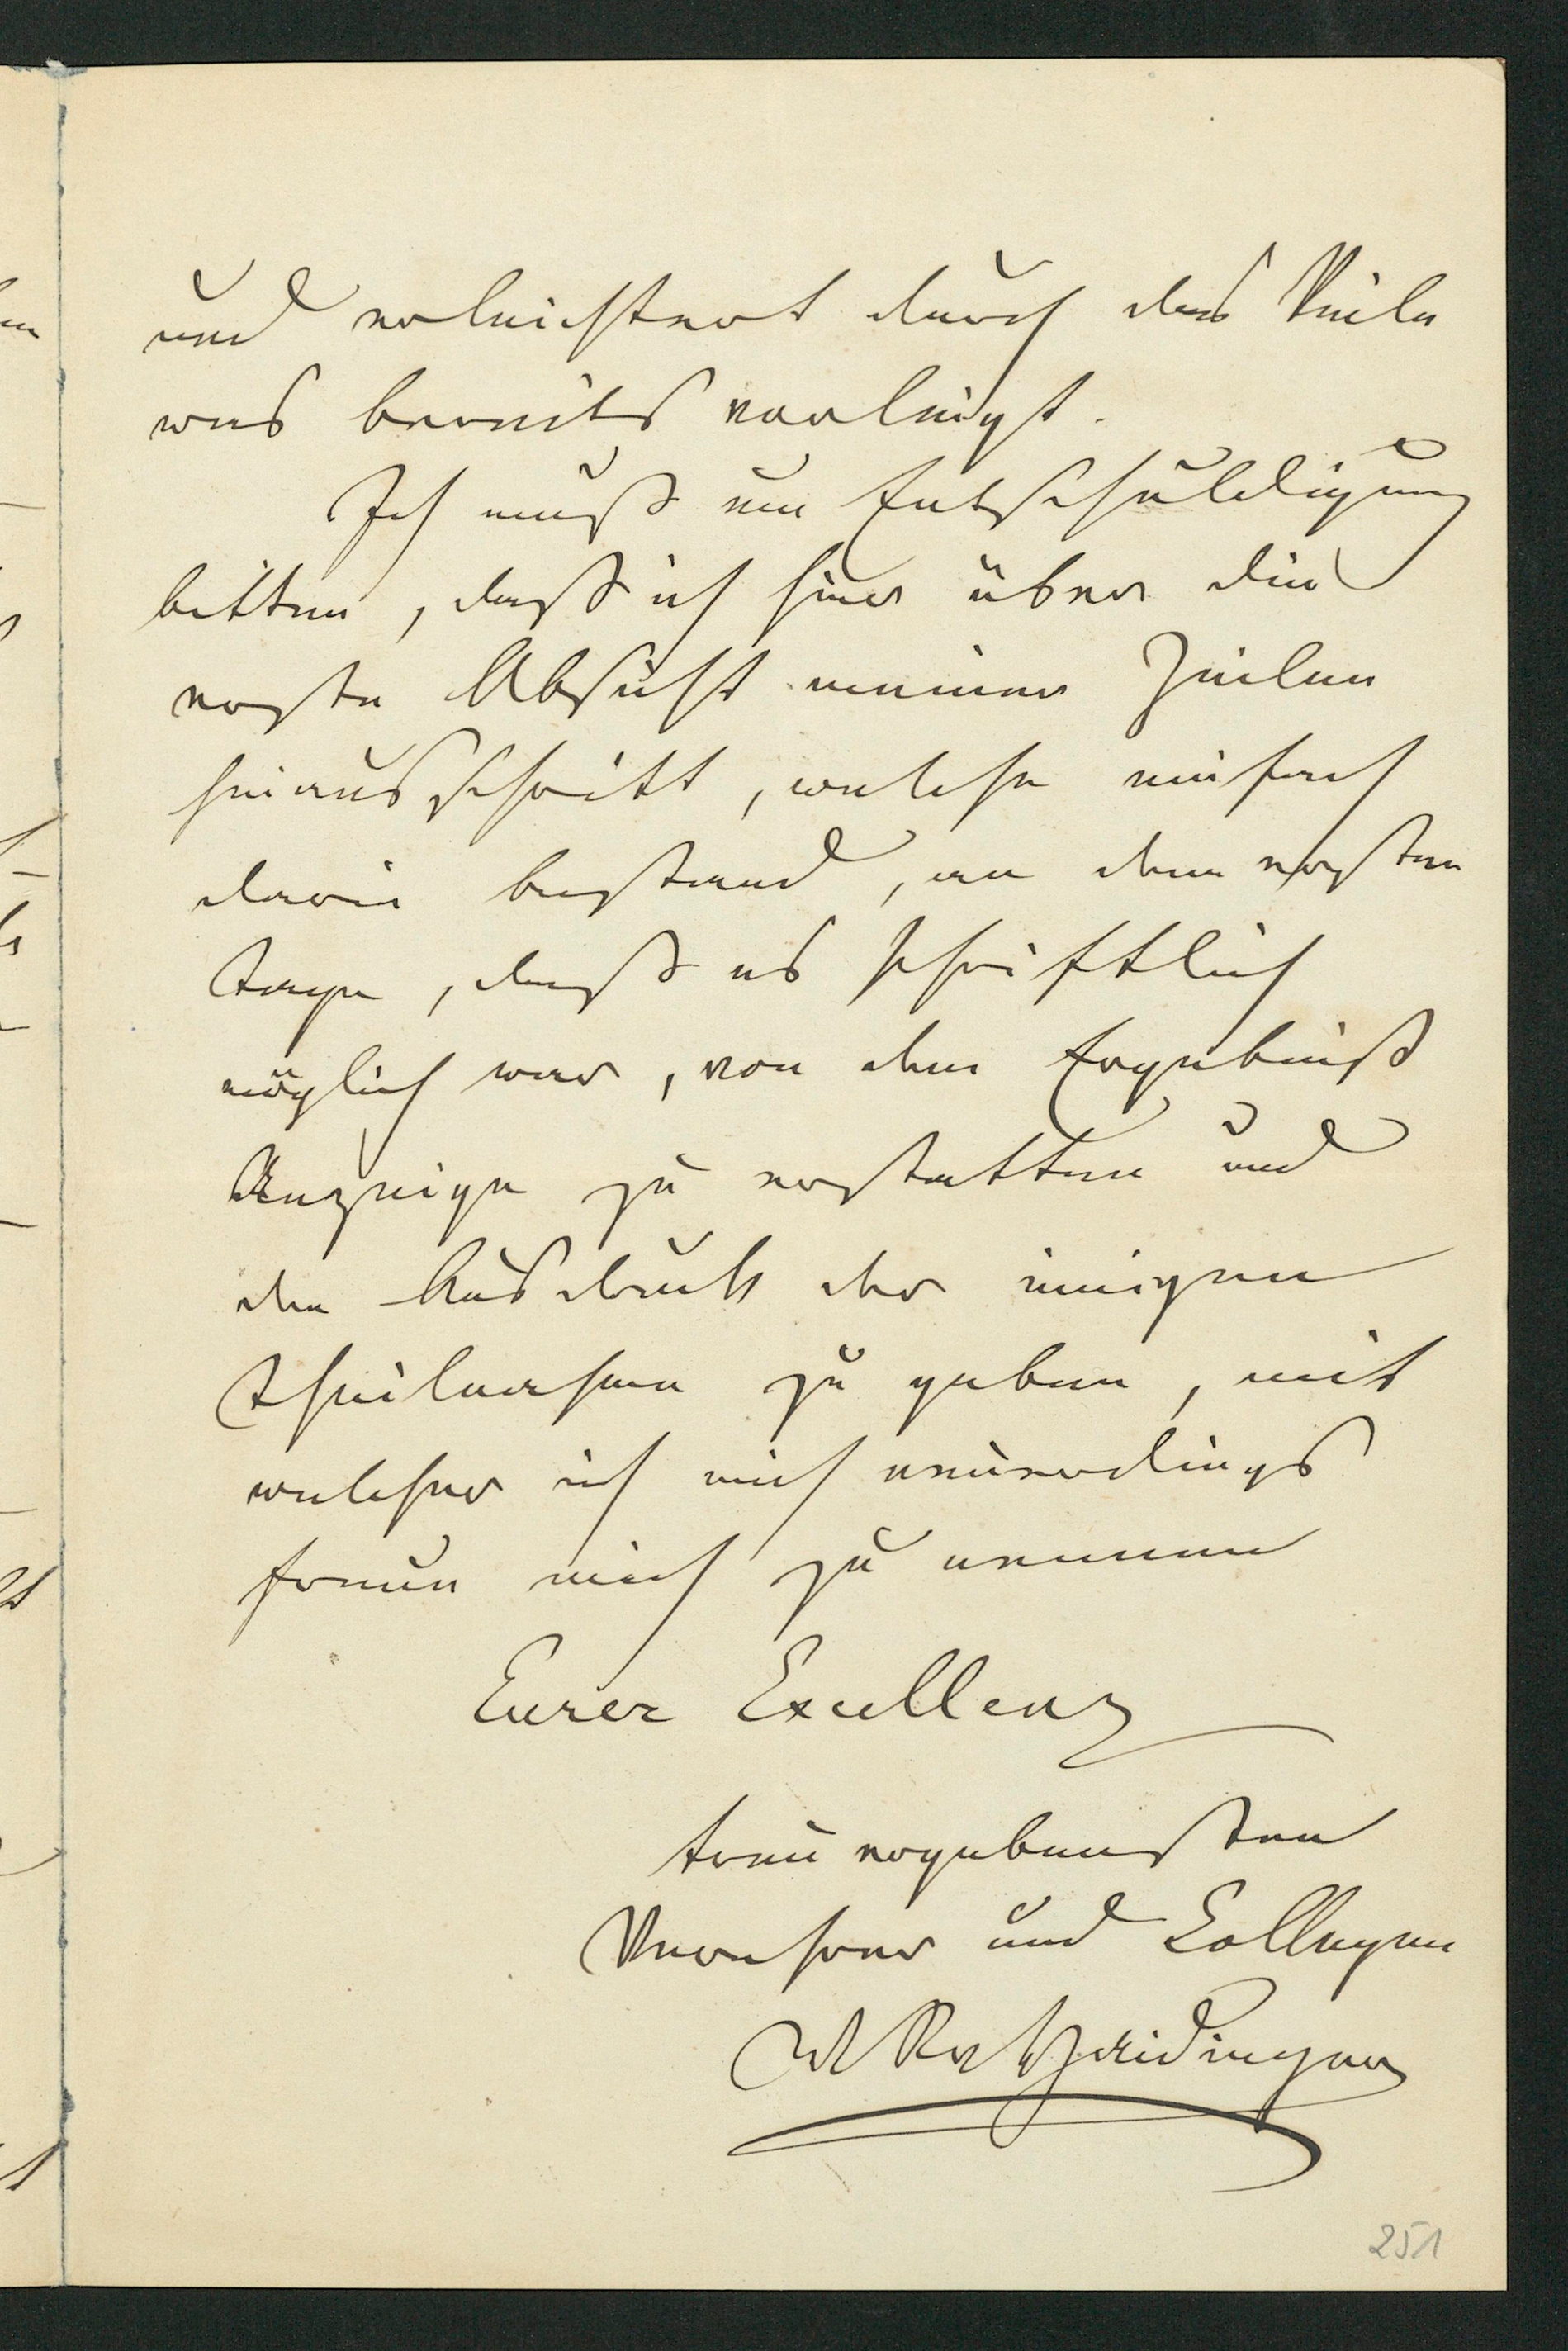 und erleichtert durch das Viele
was bereits vorliegt.
Ich muß um Entschuldigung
bitten, daß ich hier über die
erste Absicht meiner Zeilen
hinausschritt, welche einfach
darin bestand, an dem ersten
Tage, daß es schriftlich
möglich war, von dem Ergebniß
Anzeige zu erstatten und
den Ausdruck der innigen
Theilnahme zu geben, mit
welcher ich mich neuerdings
freue mich zu nennen
Eurer Excellenz
treu ergebensten
Verehrer und Collegen
W Rr Haidinger
251